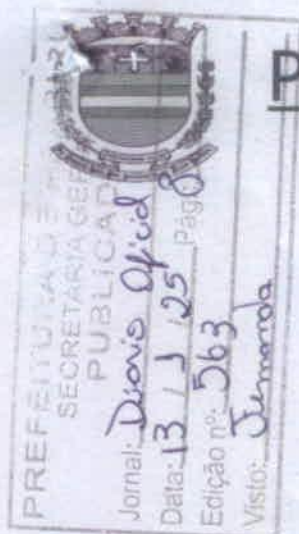 PREFEITURA DE
SECRETARIA GE
PUBLICAD
Jornal: Diario Oficial
Data: 13 / 1 / 25 Pág
Edição nº: 563
Visto: Fernanda
P